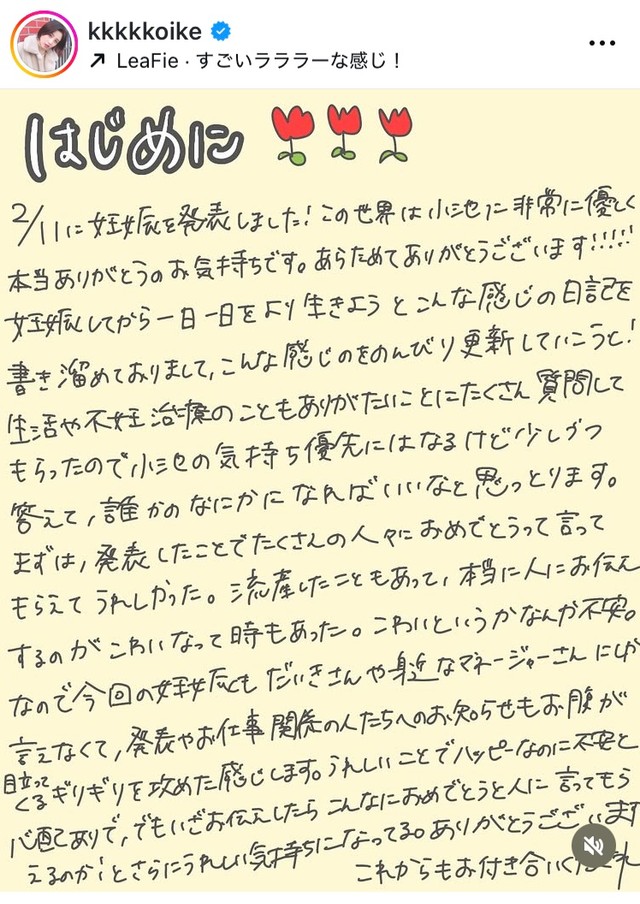 kkkkkoike
LeaFie · すごいラララーな感じ！
はじめに
2/11に妊娠を発表しました！この世界は小池に非常に優しく
本当ありがとうのお気持ちです。あらためてありがとうございます!!!!!
妊娠してから一日一日をより生きようとこんな感じの日記を
書き溜めておりまして、こんな感じのをのんびり更新していこうと！
生活や不妊治療のこともありがたいことにたくさん質問して
もらったので小池の気持ち優先にはなるけど少しづつ
答えて、誰かのなにかになればいいなと思っとります。
まずは、発表したことでたくさんの人々におめでとうって言って
もらえてうれしかった。流産したこともあって、本当に人にお伝え
するのがこわいなって時もあった。こわいというかなんか不安。
なので今回の妊娠もだいきさんや身近なマネージャーさんにしか
言えなくて、発表やお仕事関係の人たちへのお知らせもお腹が
目立ってくるギリギリを攻めた感じします。うれしいことでハッピーなのに不安と
心配ありで、でもいざお伝えしたらこんなにおめでとうと人に言ってもら
えるのか！とさらにうれしい気持ちになってる。ありがとうございます
これからもお付き合いくだ